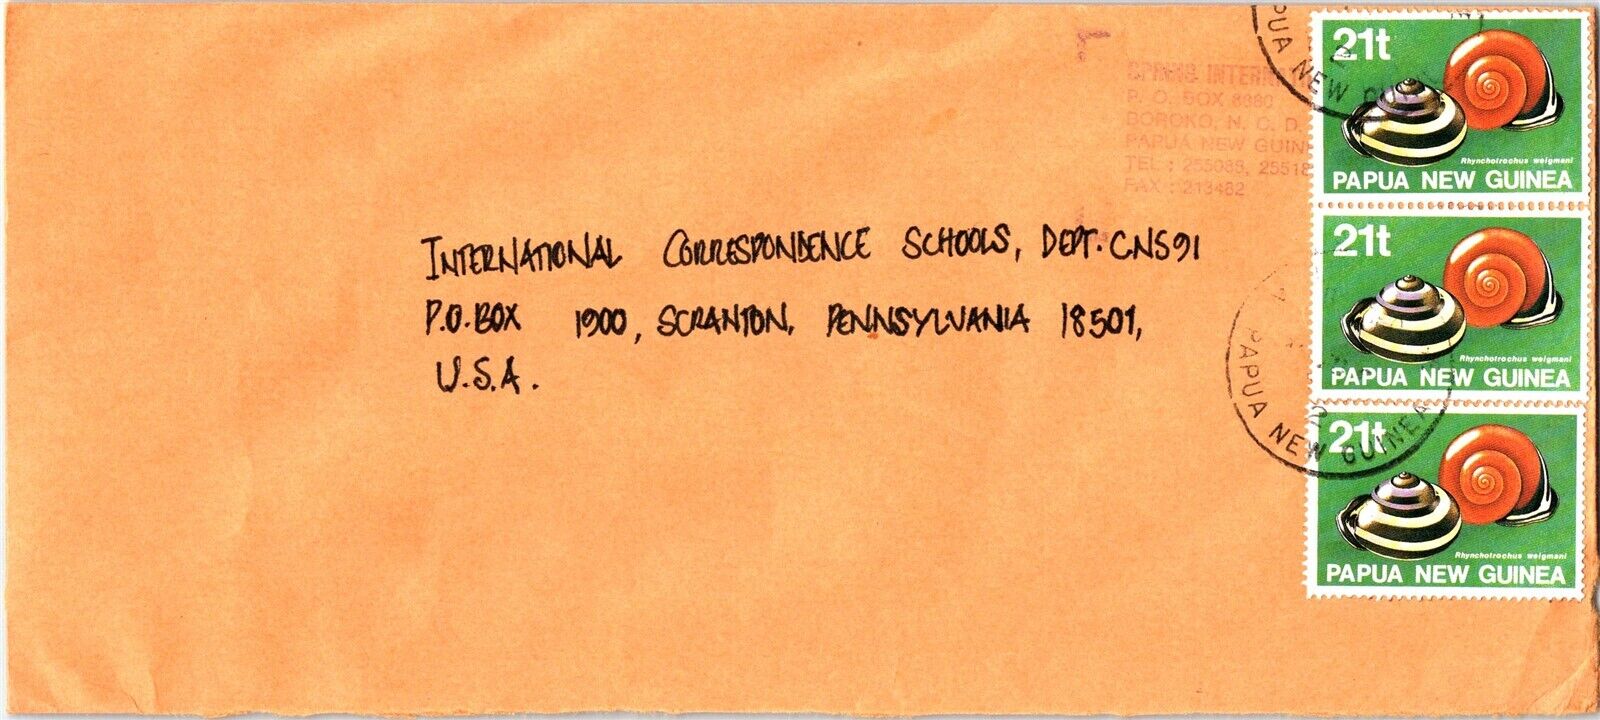 21t
Rhynchotrochus weigmani
PAPUA NEW GUINEA
21t
Rhynchotrochus weigmani
PAPUA NEW GUINEA
21t
Rhynchotrochus weigmani
PAPUA NEW GUINEA
PUA NEW GUIN
PAPUA NEW GUINEA
P. O. BOX
BOROKO, N. C. D.
PAPUA NEW GUIN
TEL : 255089, 25518
FAX : 213482
INTERNATIONAL CORRESPONDENCE SCHOOLS, DEPT. CNS91
P.O. BOX 1900, SCRANTON, PENNSYLVANIA 18501,
U.S.A.